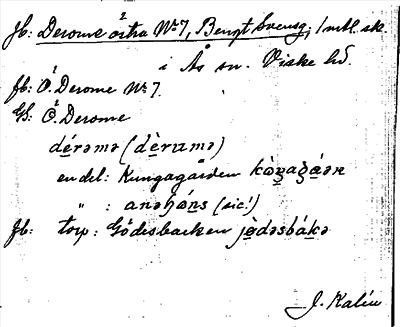 Jb: Derome östra Nr 7, Bengt Svensg; 1 mtl. sk.
i Ås sn. Viske hd.
Jb: Ö. Derome Nr 7.
GS: Ö. Derome
dérəmə (dèrumə)
en del: Kungagården
" : anəhós (sic!)
Jb: torp: Gödesbacken jødəsbákə
J. Kalén